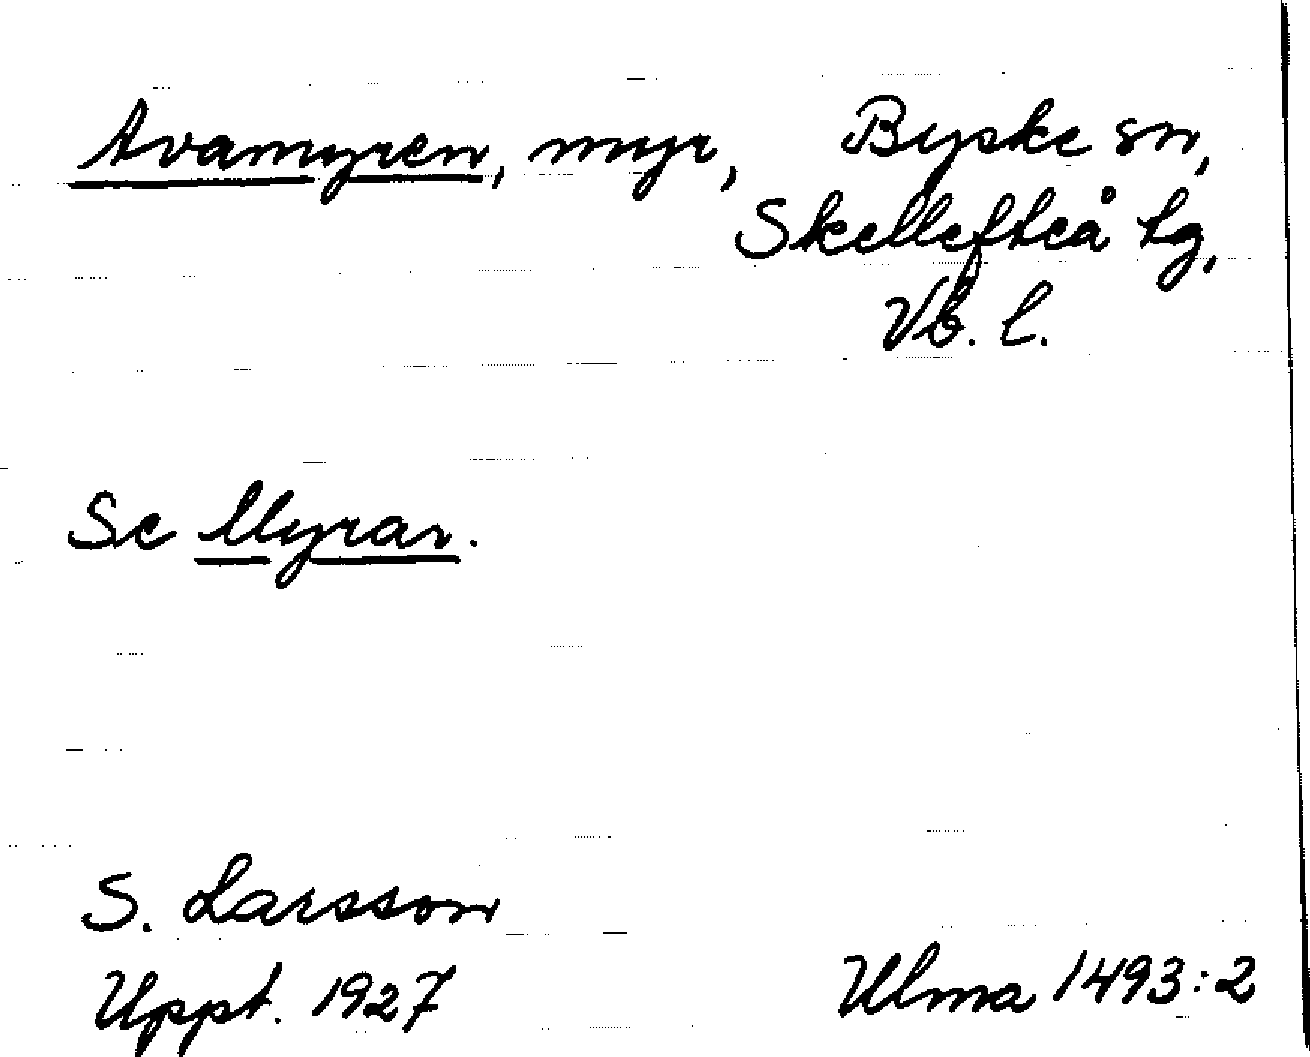 Avamyren, myr, Byske sn,
Skellefteå tg,
Vb. l.
Se Myrar.
S. Larsson
Uppt. 1927
Ulma 1493:2